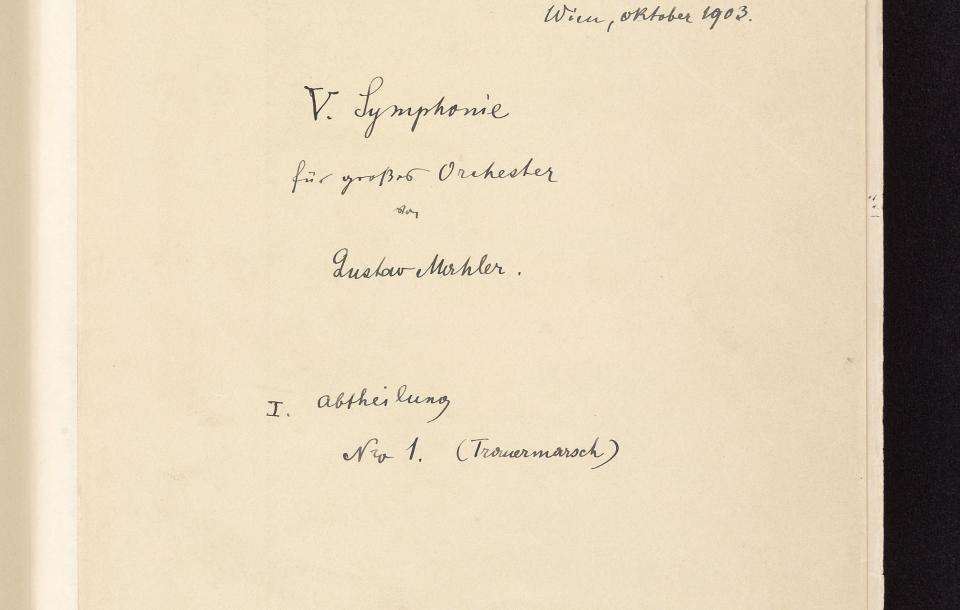 Wien, oktober 1903.
V. Symphonie
für großes Orchester
von
Gustav Mahler.
I. Abtheilung
Nro 1. (Trauermarsch)